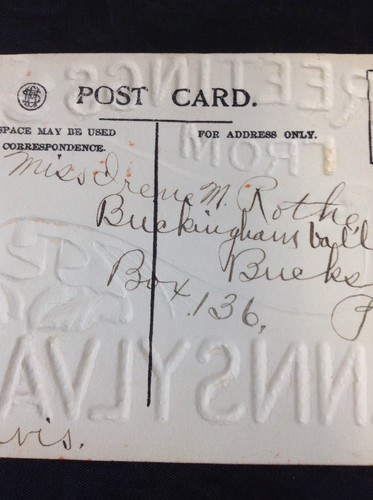 POST CARD.
SPACE MAY BE USED
CORRESPONDENCE.
FOR ADDRESS ONLY.
Miss Irene M. Rothe
Buckingham Vall
Bucks
Box 136,
GREETINGS
FROM
NNSYLVA
vis.